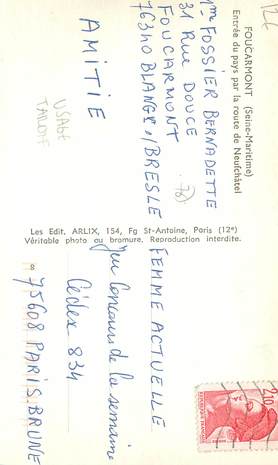 12€
FOUCARMONT (Seine-Maritime)
Entrée du pays par la route de Neufchâtel
1 me FOSSIER BERNADETTE
31 RUE DOUCE
FOUCARMONT
76340 BLANGY s/BRESLE
AMITIE
Les Edit. ARLIX, 154, Fg St-Antoine, Paris (12e)
Véritable photo au bromure. Reproduction interdite.
8
2,10
REPUBLIQUE FRANÇAISE
FEMME ACTUELLE
Jeu Concours de la semaine
Cédex 834
75608 PARIS BRUNE